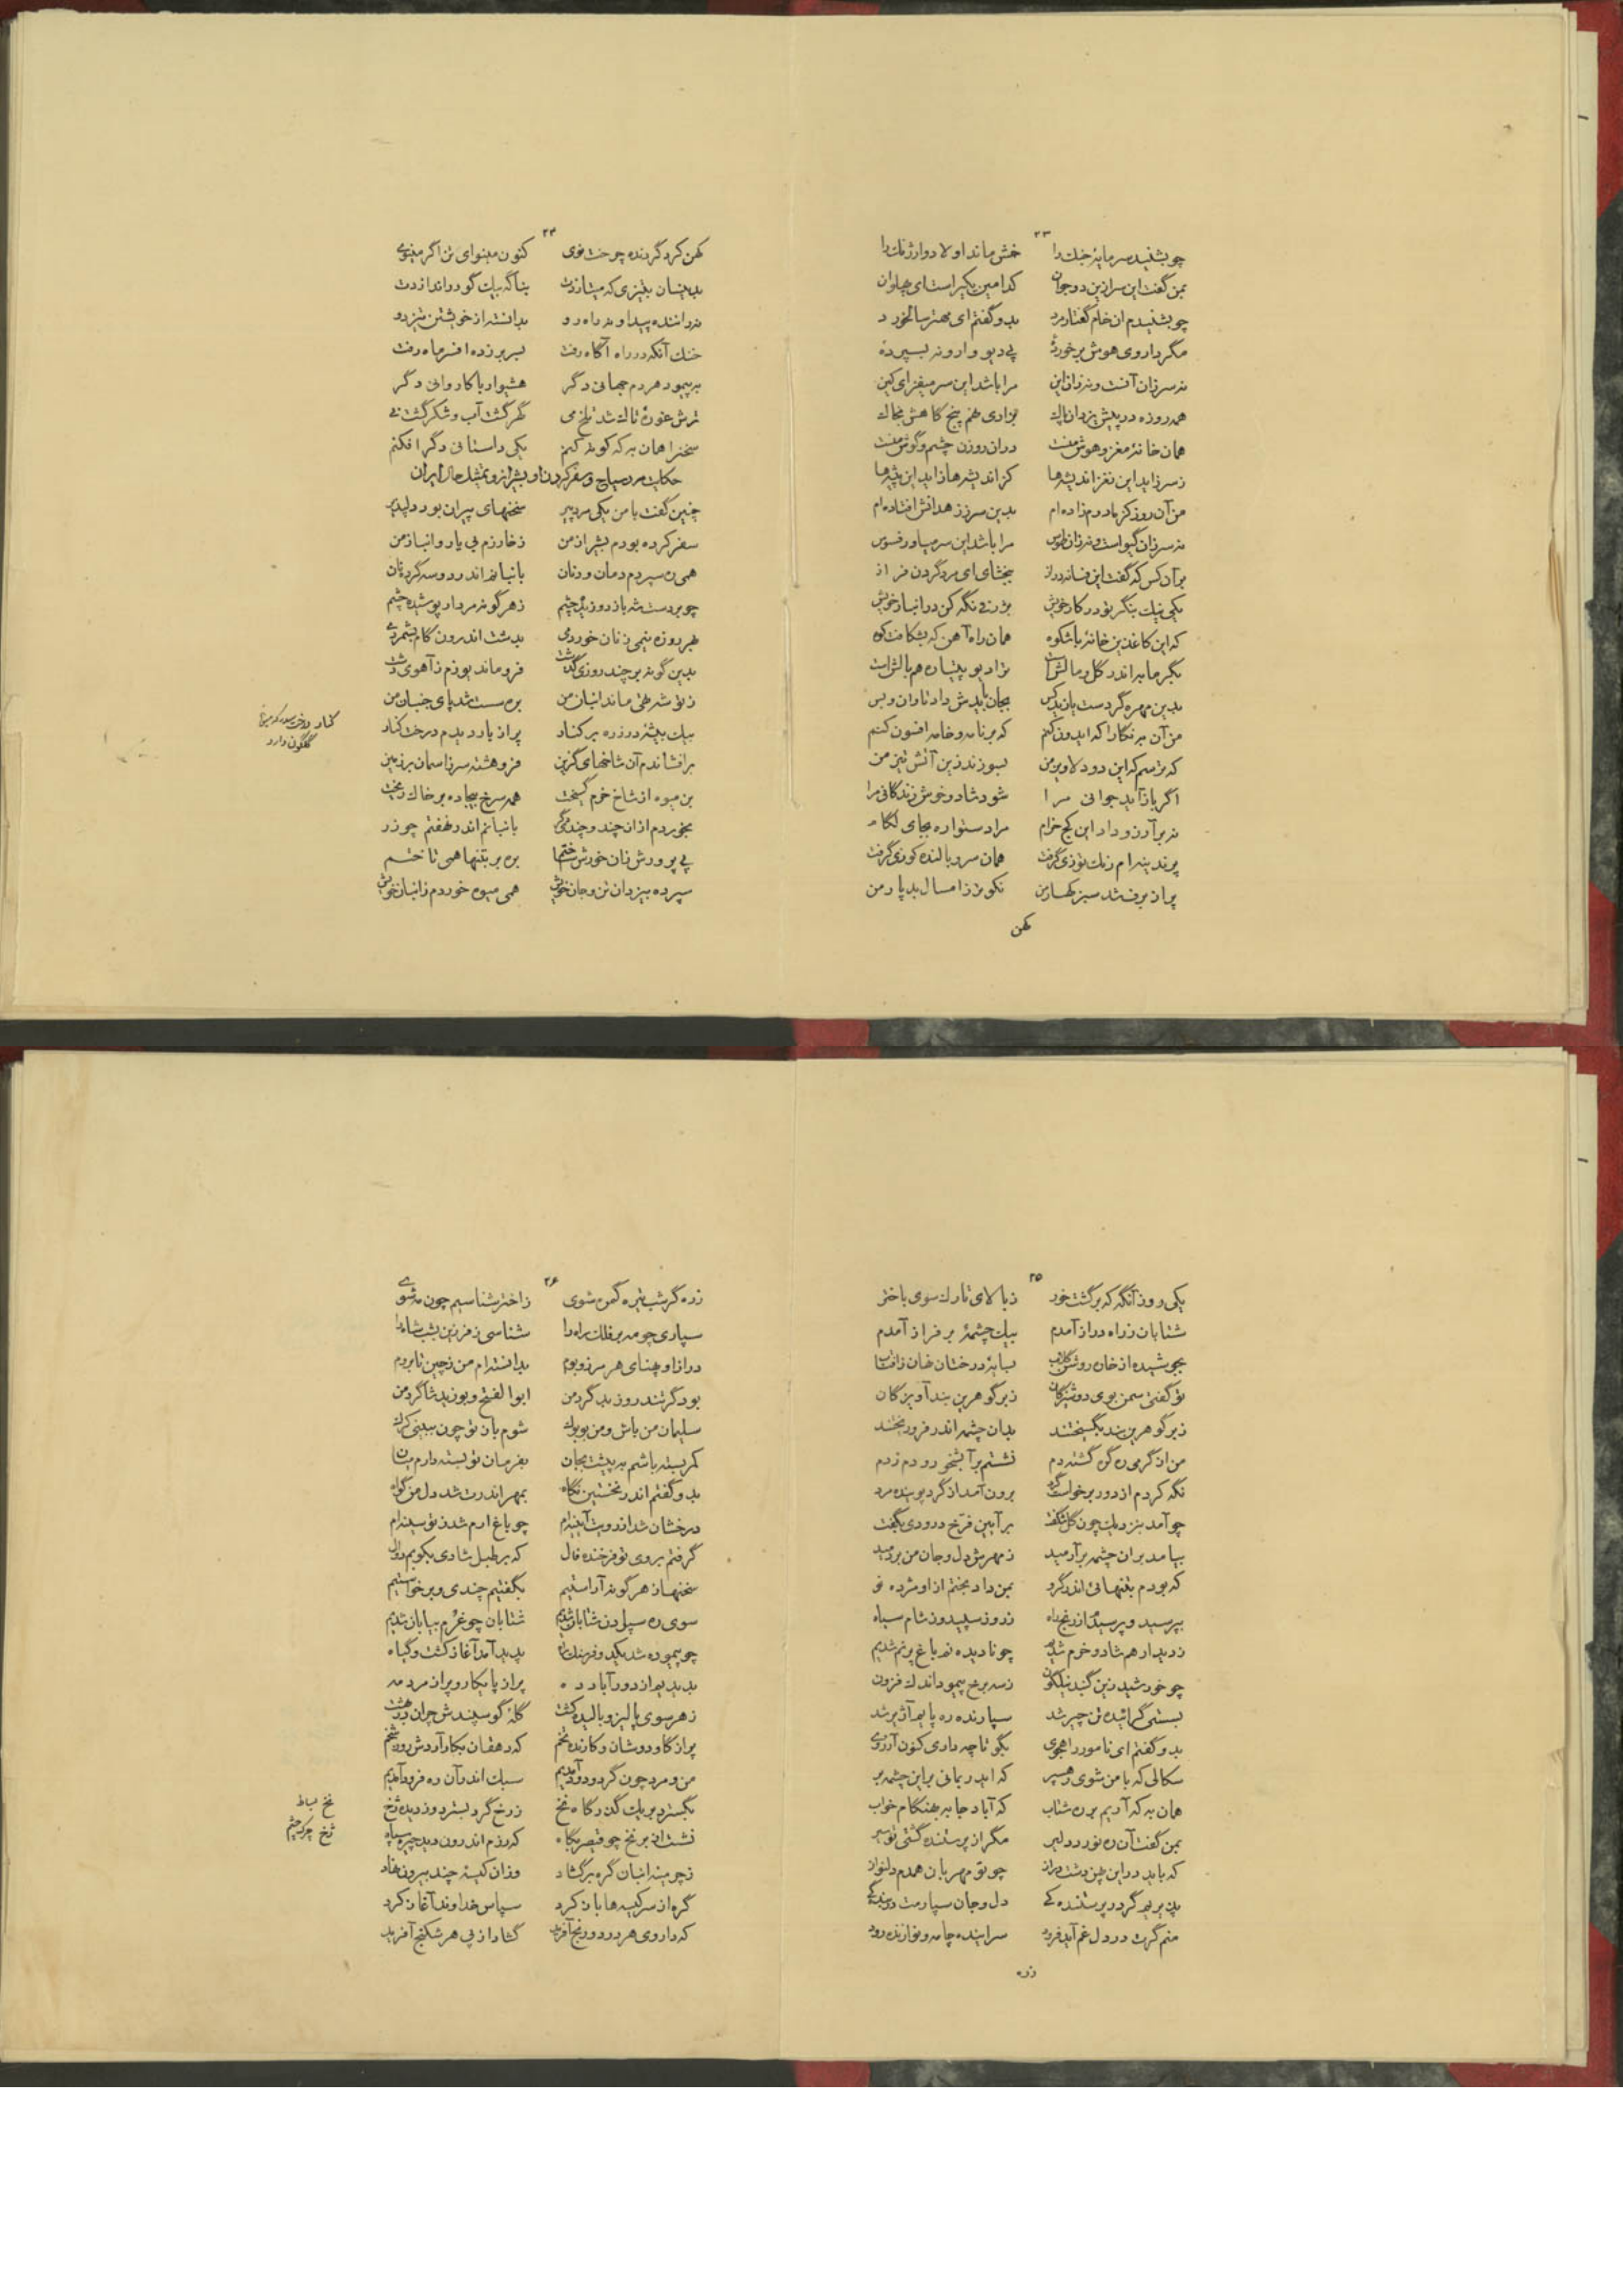 ۲۳
چو بشنید سرمایهٔ جنك را خمش ماند اولاد وارژنك را
بمن گفت این سر ازین دو جوان کدامین بگیر است ای پهلوان
چو بشنیدم ان خام گفتار مرد بدو گفتم ای مهتر سالخورد
مگر داروی هوش بر خوردهٔ پی دیو وارونه بسپردهٔ
نه سر زان آنست و نه زان این مرا باشد این سر میفزای کین
همه روزه در پیش یزدان پاك بزاری نهم پنج گاهش بخاك
همان خانهٔ مغز و هوش منست دران روزن چشم و گوش منست
ز سر زاید این نغز اندیشه‌ها کز اندیشه‌ها زاید این پیشه‌ها
من آن روز کز مادرم زاده‌ام بدین سرز زهدانش افتاده‌ام
نه سر زان گیو است و نه زان طوس مرا باشد این سر میاور فسوس
بر آن کس که گفت این فسانه دراز ببخشای ای مرد گردن فراز
یکی نیك بنگر تو در کار خویش بژرفی نگه کن در انباز خویش
که این کاغذین خانهٔ باشکوه همان راه آهن که بشکافت کوه
بگرمابه اندر گل و مالش است نژاد بو پیتیاره هم بالش است
بدین مهره گر دست یازید کس بجان بایدش داد تاوان و بس
من آن به نگارا که ایدون کنم که بر نامه و خامه افسون کنم
که ترسم که این دود لاوین من بسوزند زین آتش تیز من
اگر باز آید جوانی مرا شود شاد و خوش زندگانی مرا
نه بر آرزو داد این کج خرام مرا دستواره بجای لگام
پرند بنه رام زنك توزی گرفت همان سرو بالنده کوزی گرفت
پر از برف شد سبز کهسار من نکوتر ز امسال بد پار من
کهن
۲۴
کهن کرد گردنده چرخت نوی کنون مینوای تن اگر مینوی
بدینسان بتیزی که میتازدت بناگه بیك گو در اندازدت
نه داننده پیدا و نه راه رو بدانسته از خویشتن تیز دو
خنك آنکه در راه آگاه رفت بسر بر زده افسر ماه رفت
به پیمود هر دم جهانی دگر هشیوار با کاروانی دگر
ترش غورهٔ تاك شد تلخ می گهر گشت آب و شکر گشت نی
سخنرا همان به که کوته کنم یکی داستانی دگر افکنم
حکایت مرد سیاح و سفر کردن او بشیراز و تمثیل حال ایران
چنین گفت با من یکی مرد پیر سخنهای پیران بود دلپذیر
سفر کرده بودم بشیراز من ز خارزم بی یار و انباز من
همی ره سپردم دمان و دنان بانبانم اندر دو سه گرده نان
چو بر دست شه باز دوزیده چشم ز هر گونه مردار پوشیده چشم
بهر روزه نیمی ز نان خوردمی بدشت اندرون گام بشمردمی
بدین گونه بر چند روزی گذشت فرو ماند یوزم ز آهوی دشت
ز توشه تهی ماند انبان من بره سست شد پای جنبان من
بیك بیشهٔ در زره بر کنار پر از بار دیدم درخت کنار
کنار درخت سدر که میوهٔ
گلگون دارد
برافشاندم آن شاخهای گزین فروهشته سر ز اسمان بر زمین
بن میوه از شاخ خرم گسیخت همه سرخ بیجاده بر خاك ریخت
بخوردم ازان چند و چند دگر بانبانم اندر نهفتم چو زر
پی پرورش زان خورش ساختم بره بر بتنها همی تاختم
سپرده بیزدان تن و جان خویش همی میوه خوردم ز انبان خویش
۲۵
یکی روز آنگه که برگشت خور ز بالای تارك سوی باختر
شتابان ز راه دراز آمدم بیك چشمهٔ بر فراز آمدم
بجوشیده از خان روشن گلاب بسایهٔ درختان نهان ز افتاب
تو گفتی سمن بوی دوشیزگان ز بر گوهرین بند آویزگان
ز بر گوهرین بند بگسیختند بدان چشمه اندر فرو ریختند
من از گرمی ره گن گشته دم نشستم بر آبشخور و دم زدم
نگه کردم از دور برخواست گرد برون آمد از گرد پوینده مرد
چو آمد بنزدیك چون گل شکفت بر آیین فرخ درودی بگفت
بیامد بران چشمه بر آرمید ز مهرش دل و جان من بر دمید
که بودم بتنهائی اندر گرو بمن داد بختم از او مژده نو
بپرسید و پرسیدم از رنج راه ز روز سپید و ز شام سیاه
ز دیدار هم شاد و خرم شدیم چو نادیده نم باغ پر نم شدیم
چو خورشید زین گنبد نیلگون ز سه برخ پیمود اندك فزون
بسستی گرائیده تن چیر شد سپارنده ره پایم آژیر شد
بدو گفتم ای نامور راهجوی بگو تا چه داری کنون آرزوی
سکالی که با من شوی رهسپر که ایدر بمانی بر این چشمه بر
همان به که آریم بره شتاب که آباد جا به هنگام خواب
بمن گفت آن ره نورد دلیر مگر از پرستنده گشتی تو سیر
که باید در این پهن دشت دراز چو تو مهربان همدم دلنواز
پذیریم گر در پرستنده کی دل و جان سپارمت در بندگی
منم گرت در دل غم آید فرود سراینده چامه و نوازنده رود
زره
۲۶
ز ره گر شب تیره گمره شوی ز اختر شناسیم چون مه شوی
سپاری چو مه بر فلك راه را شناسی ز فرزین بشب شاه را
درازا و پهنای هر مرز و بوم بدانسته‌ام من ز چین تا بروم
بود گر تند روز بد گرد من ابوالفتح و بوزید شاگرد من
سلیمان من باش و من بوبوك شوم باز تو چون ببینی کرك
کمر بسته باشم به پیشت بجان بفرمان تو بسته دارم میان
بدو گفتم اندر نخستین نگاه بمهر اندرت شد دل من گواه
درخشان شد از رویت آیینه‌ام چو باغ ارم شد ز تو سینه‌ام
گرفتم بروی تو فرخنده فال که بر طبل شادی بکوبم دوال
سخنها ز هر گونه آراستیم بگفتیم چندی و برخواستیم
سوی ره سپردن شتابان شدیم شتابان چو غرم بیابان شدیم
چو پیموده شد یکدو فرسنك راه پدید آمد آغاز کشت و گیاه
بدیدیم از دور آباد ده پر از پایکار و پر از مرد مه
ز هر سوی پالیز و بالیده کشت گلهٔ گوسپندش چران در دشت
پر از گاو دوشان و کارنده تخم که دهقان بکار آردش روز شخم
من و مرد چون گرد و دود آمدیم سبك اندر آن ده فرود آمدیم
بگسترد بر یك گذرگاه نخ ز رخ گرد بسترد و ز دیده ژخ
نخ بساط
ژخ چرك چشم
نشست از بر نخ چو قیصر بگاه که رزم اندرون دید چیره سپاه
ز چرمینه انبان گره بر گشاد وزان کیسهٔ چند بیرون نهاد
گره از سر کیسه‌ها باز کرد سپاس خداوند آغاز کرد
که داروی هر درد و رنج آفرید گشاد از پی هر شکنج آفرید